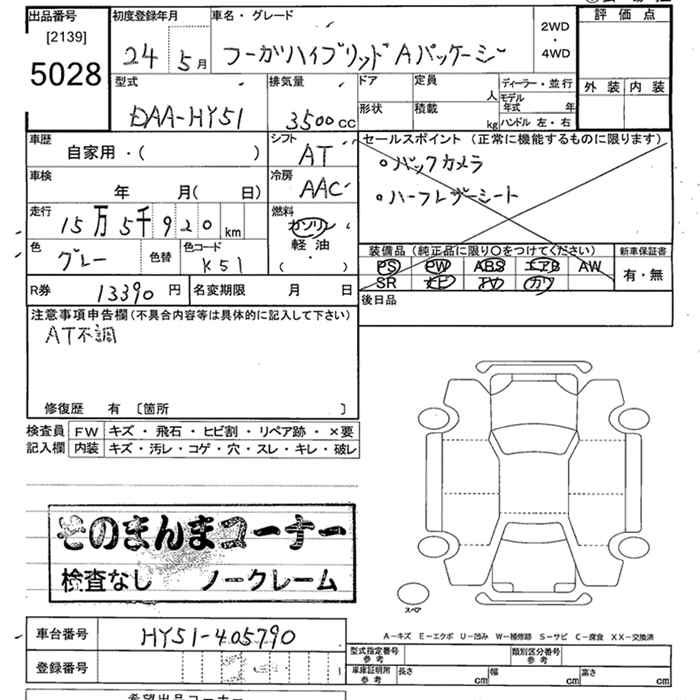 出品番号
[2139]
5028
初度登録年月
24 5月
車名・グレード
フーガハイブリッド Aパッケージ
2WD
・
4WD
評価点
外装 内装
型式
DAA-HY51
排気量
3500cc
ドア
形状
定員
人
積載
kg
ディーラー・並行
モデル年式 年
ハンドル 左・右
車歴
自家用・( )
シフト
AT
セールスポイント (正常に機能するものに限ります)
・バックカメラ
・ハーフレザーシート
車検
年 月( 日)
冷房
AAC
走行
15万5千920km
燃料
ガソリン
軽油
( ・ )
色
グレー
色替
色コード
K51
装備品 (純正品に限り○をつけてください)
PS PW ABS エアB AW
SR ナビ TV カワ
新車保証書
有・無
R券
13390円
名変期限 月 日
後日品
注意事項申告欄(不具合内容等は具体的に記入して下さい)
AT不調
修復歴 有 〔箇所 〕
検査員記入欄
FW キズ・飛石・ヒビ割・リペア跡・×要
内装 キズ・汚レ・コゲ・穴・スレ・キレ・破レ
そのまんまコーナー
検査なし ノークレーム
スペア
車台番号
HY51-405790
登録番号
A-キズ E-エクボ U-凹み W-補修跡 S-サビ C-腐食 XX-交換済
型式指定番号参考
類別区分番号参考
車庫証明用参考
長さ cm
幅 cm
高さ cm
希望出品コーナー